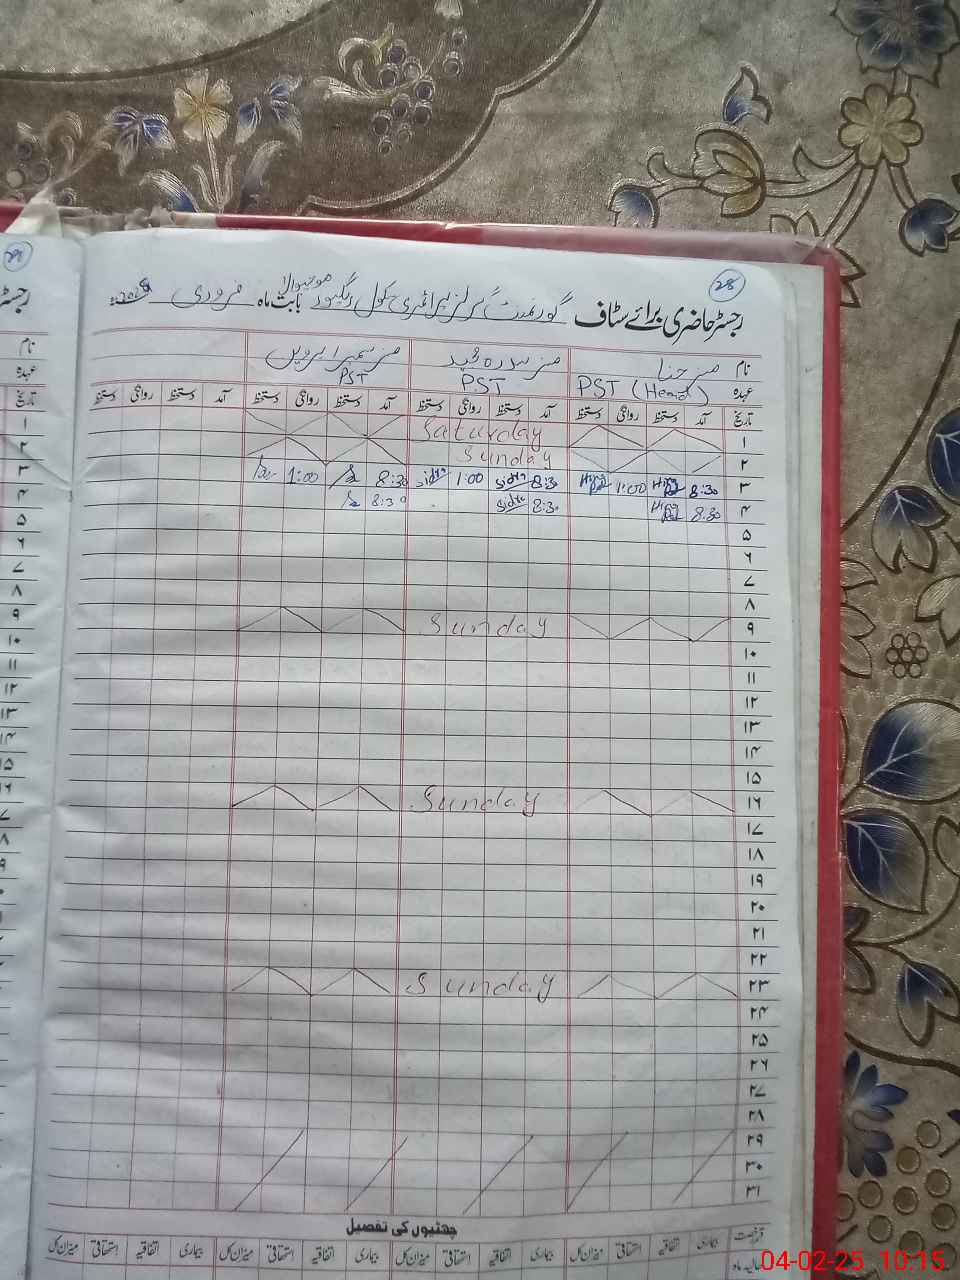 28
رجسٹر حاضری برائے سٹاف گورنمنٹ گرلز پرائمری سکول رنگپور بابت ماہ فروری 2025ء
نام مسز حنا مسز سدرہ مسز سمیرا پروین
عہدہ PST (Head) PST PST
تاریخ آمد دستخط روانگی دستخط آمد دستخط روانگی دستخط آمد دستخط روانگی دستخط آمد دستخط روانگی دستخط
۱ Saturday ۱
۲ Sunday ۲
۳ 8:30 Hina 1:00 Hina 8:30 Sidra 1:00 Sidra 8:30 1:00 ۳
۴ 8:30 Hina 8:30 Sidra 8:30 ۴
۵ ۵
۶ ۶
۷ ۷
۸ ۸
۹ Sunday ۹
۱۰ ۱۰
۱۱ ۱۱
۱۲ ۱۲
۱۳ ۱۳
۱۴ ۱۴
۱۵ ۱۵
۱۶ Sunday ۱۶
۱۷
۱۸
۱۹
۲۰
۲۱
۲۲
۲۳ Sunday
۲۴
۲۵
۲۶
۲۷
۲۸
۲۹
۳۰
۳۱
چھٹیوں کی تفصیل
قسم رخصت بیماری اتفاقیہ استحقاقی میزان کل بیماری اتفاقیہ استحقاقی میزان کل بیماری اتفاقیہ استحقاقی میزان کل بیماری اتفاقیہ استحقاقی میزان کل
04-02-25 10:15